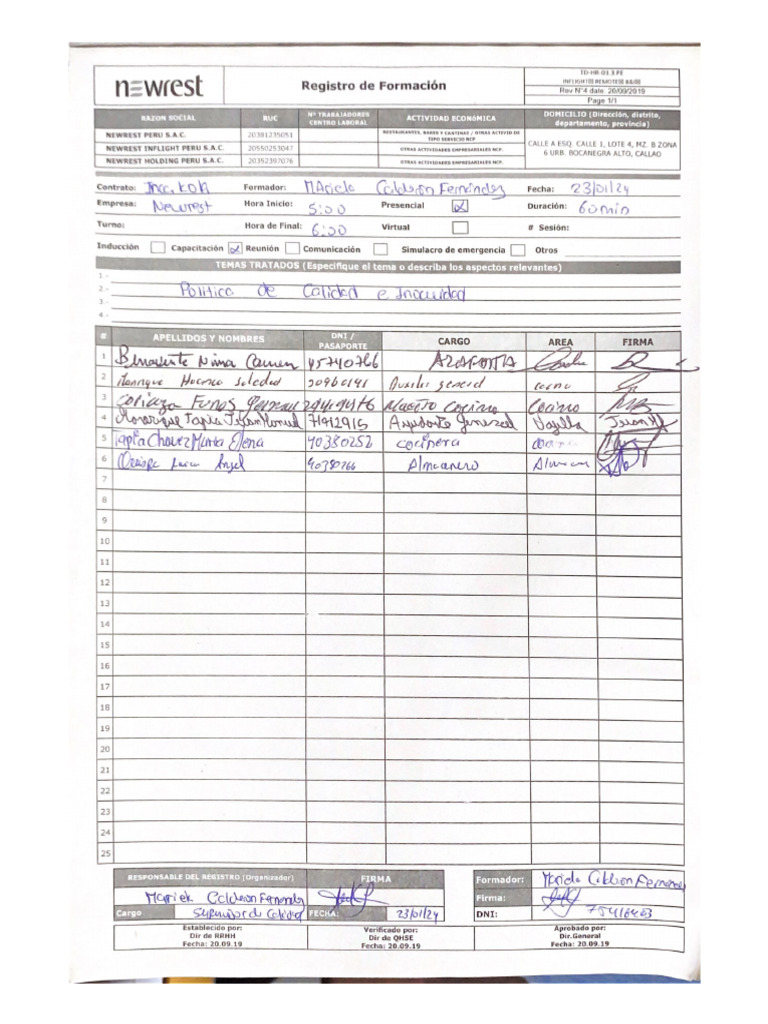 newrest
Registro de Formación
TD-HR-03.3.PE
Rev N°4 date 20/09/2019
Page 1/1
RAZON SOCIAL RUC N° TRABAJADORES CENTRO LABORAL ACTIVIDAD ECONÓMICA DOMICILIO (Dirección, distrito, departamento, provincia)
NEWREST PERU S.A.C. 20381235051 RESTAURANTES, BARES Y CANTINAS / OTRAS ACTIVID DE TIPO SERVICIO NCP
NEWREST INFLIGHT PERU S.A.C. 20550253047 OTRAS ACTIVIDADES EMPRESARIALES NCP
NEWREST HOLDING PERU S.A.C. 20352397076 OTRAS ACTIVIDADES EMPRESARIALES NCP
CALLE A ESQ. CALLE 1, LOTE 4, MZ. B ZONA
6 URB. BOCANEGRA ALTO, CALLAO
Contrato: Formador: Mariela Calderón Fernández Fecha: 23/01/24
Empresa: Newrest Hora Inicio: 5:00 Presencial Duración: 60min
Turno: Hora de Final: 6:00 Virtual # Sesión:
Inducción Capacitación Reunión Comunicación Simulacro de emergencia Otros
TEMAS TRATADOS (Especifique el tema o describa los aspectos relevantes)
1.-
2.- Politica de Calidad e Inocuidad
3.-
4.-
# APELLIDOS Y NOMBRES DNI / PASAPORTE CARGO AREA FIRMA
1 Benavente Nina Carmen 45740766
2 Manrique Soledad Auxiliar general
3 Maestro Cocina Cocina
4 Manrique Tapia Juan Manuel 71912915 Ayudante General Vajilla
5 Tapia Chavez Maria Elena 40380252 cocinera
6 Quispe Angel 40380766 Almacenero
7
8
9
10
11
12
13
14
15
16
17
18
19
20
21
22
23
24
25
RESPONSABLE DEL REGISTRO (Organizador) FIRMA
Mariela Calderon Fernandez
Cargo Supervisor de Calidad FECHA: 23/01/24
Formador: Mariela Calderon Fernandez
Firma:
DNI: 75416403
Establecido por: Verificado por: Aprobado por:
Dir de RRHH Dir de QHSE Dir.General
Fecha: 20.09.19 Fecha: 20.09.19 Fecha: 20.09.19